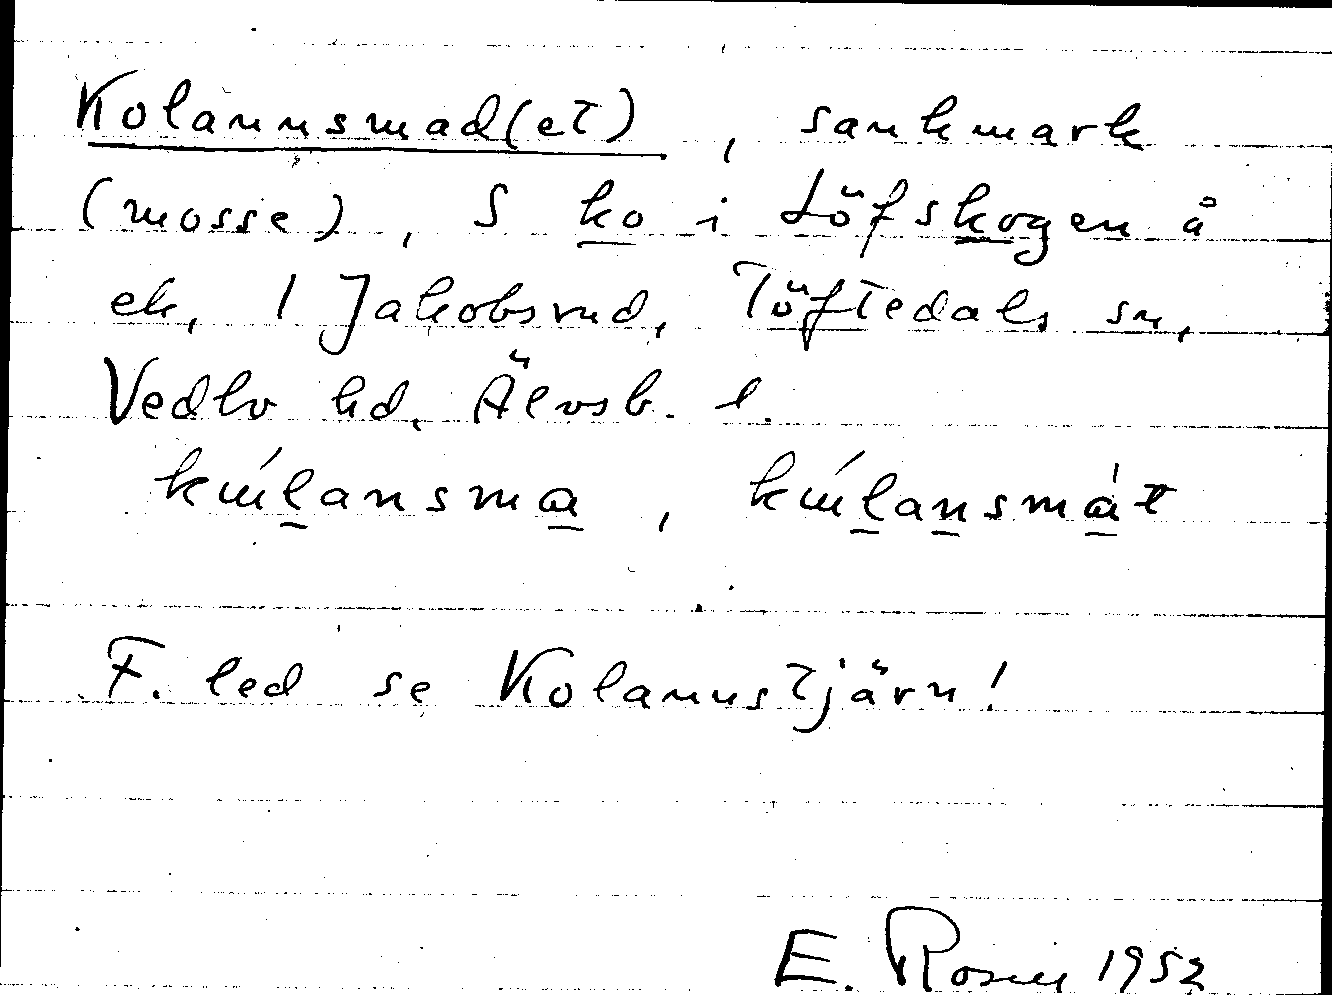 Kolannsmad(et), sankmark
(mosse), S ko i Löfskogen å
ek. 1 Jakobsrud, Töftedals sn,
Vedbo hd, Älvsb. l.
kúlansma, kúlansmát
F. led se Kolannstjärn!
E. Rosén 1952